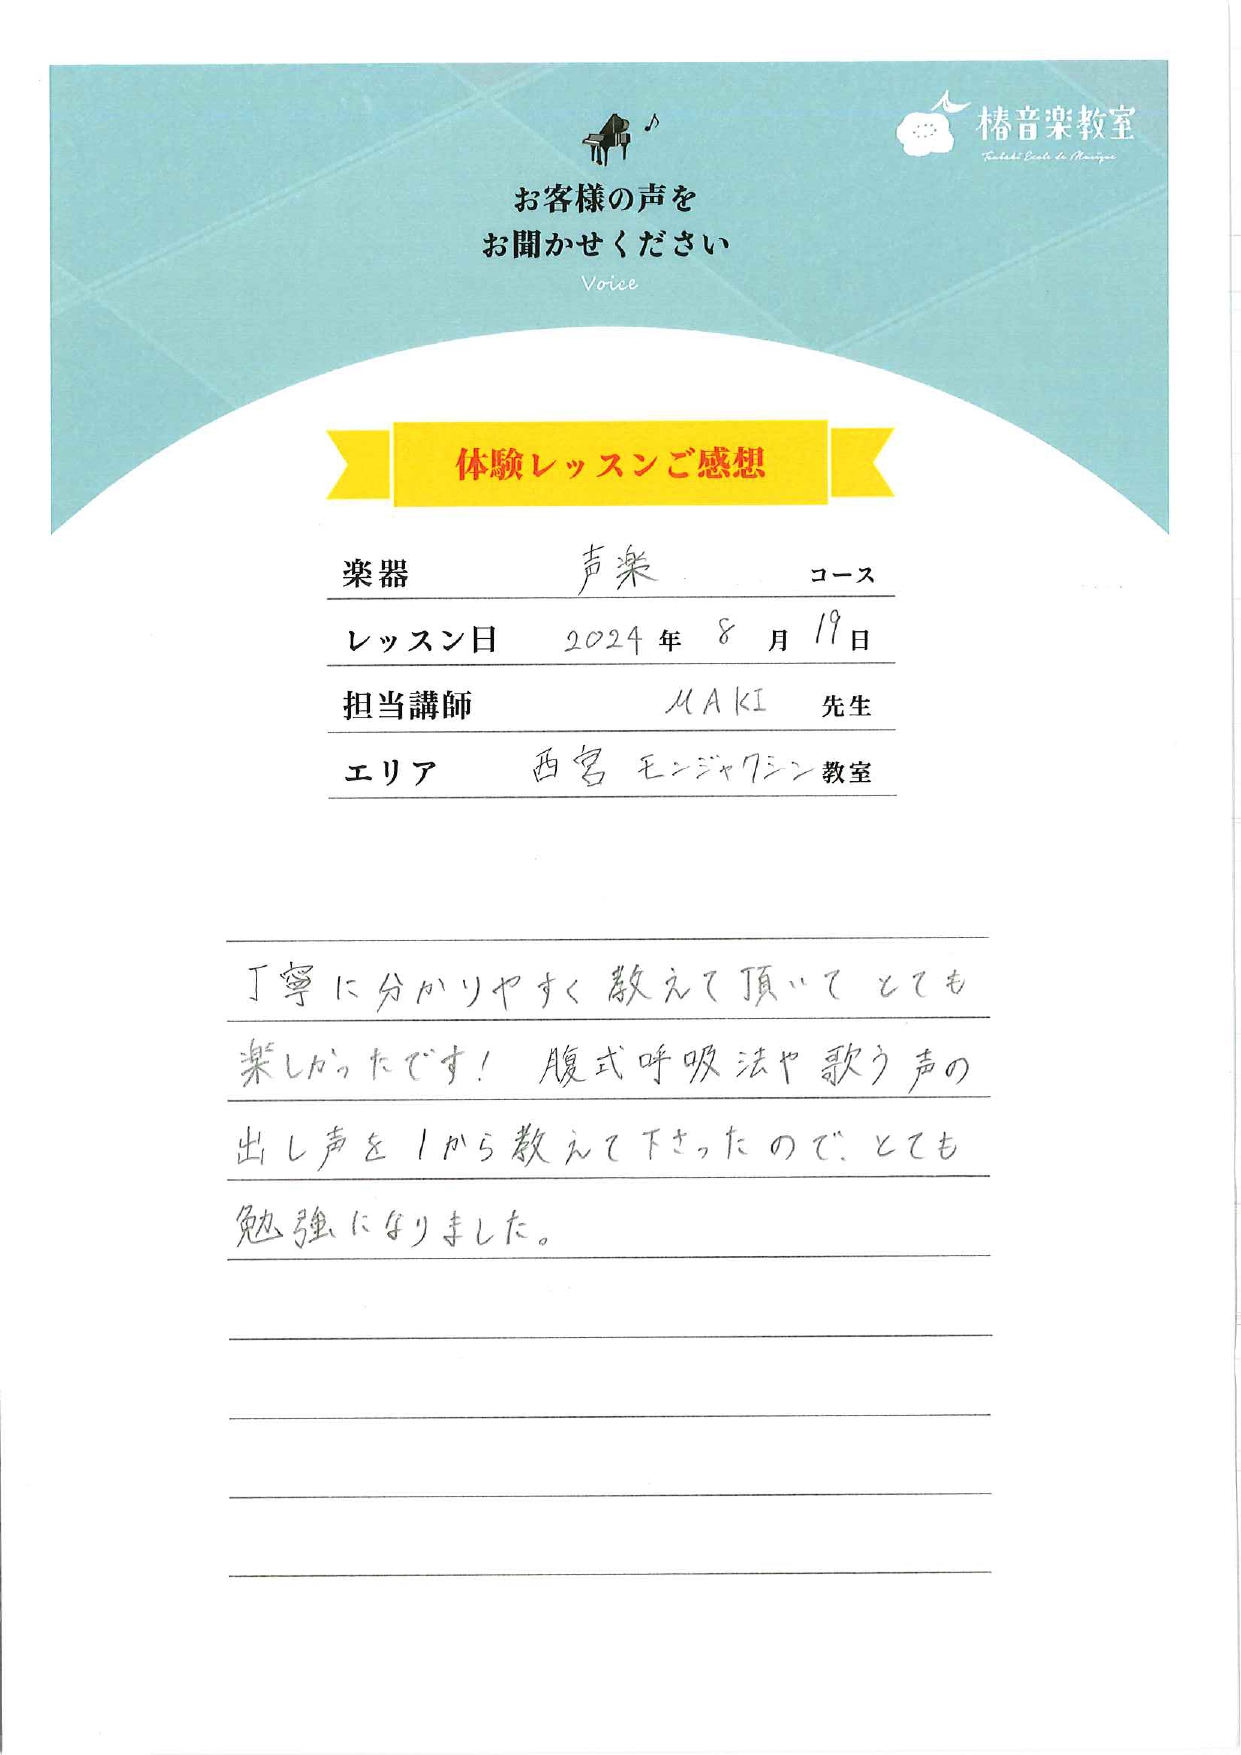 椿音楽教室
Tsubaki Ecole de Musique
お客様の声を
お聞かせください
Voice
体験レッスンご感想
楽器 声楽 コース
レッスン日 2024 年 8 月 19 日
担当講師 MAKI 先生
エリア 西宮 モンジャクシン 教室
丁寧に分かりやすく教えて頂いてとても
楽しかったです! 腹式呼吸法や歌う声の
出し声を1から教えて下さったので、とても
勉強になりました。